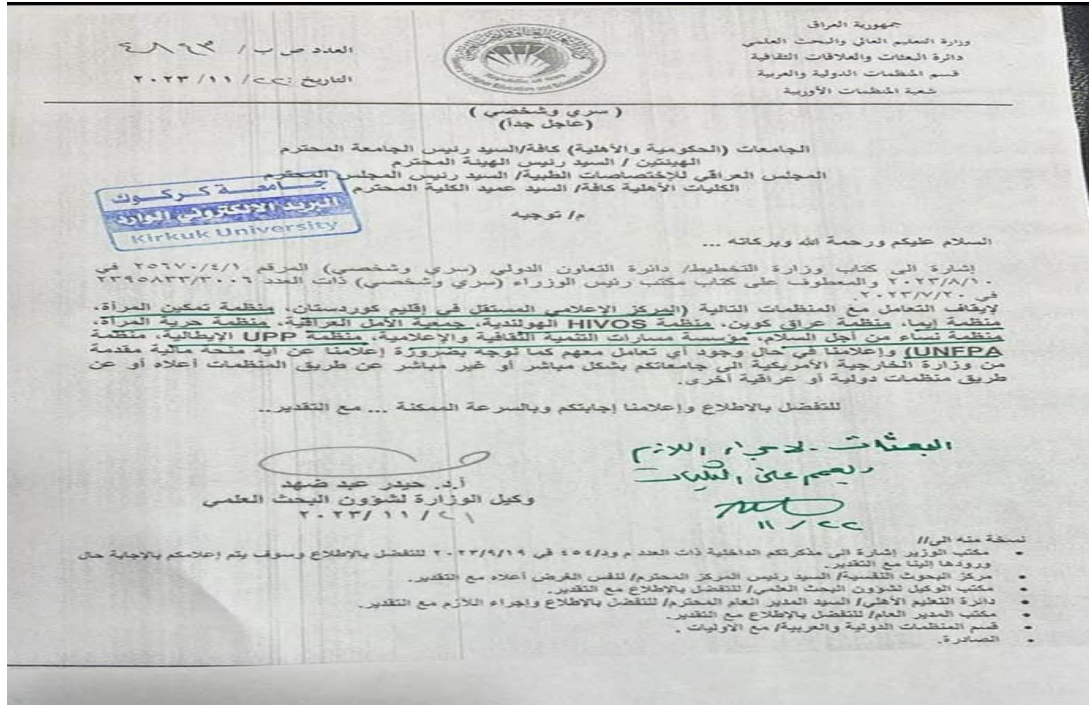 جمهورية العراق
وزارة التعليم العالي والبحث العلمي
دائرة البعثات والعلاقات الثقافية
قسم المنظمات الدولية والعربية
شعبة المنظمات الأوربية
العدد ص ب/ ٤٨٦٣
التاريخ: ٢٢/ ١١/ ٢٠٢٣
( سري وشخصي )
(عاجل جداً)
الجامعات (الحكومية والأهلية) كافة/السيد رئيس الجامعة المحترم
الهيئتين / السيد رئيس الهيئة المحترم
المجلس العراقي للإختصاصات الطبية/ السيد رئيس المجلس المحترم
الكليات الأهلية كافة/ السيد عميد الكلية المحترم
جامعة كركوك
البريد الإلكتروني الوارد
Kirkuk University
م/ توجيه
السلام عليكم ورحمة الله وبركاته ...
إشارة الى كتاب وزارة التخطيط/ دائرة التعاون الدولي (سري وشخصي) المرقم ٢٥٦٧٠/٤/١ في
٢٠٢٣/٨/١٠ والمعطوف على كتاب مكتب رئيس الوزراء (سري وشخصي) ذات العدد ٢٣٩٥٨٣٣/٣٠٠٦
في ٢٠٢٣/٧/٢٠.
لإيقاف التعامل مع المنظمات التالية (المركز الإعلامي المستقل في إقليم كوردستان، منظمة تمكين المرأة،
منظمة إيما، منظمة عراق كوين، منظمة HIVOS الهولندية، جمعية الأمل العراقية، منظمة حرية المرأة،
منظمة نساء من أجل السلام، مؤسسة مسارات التنمية الثقافية والإعلامية، منظمة UPP الإيطالية، منظمة
UNFPA) وإعلامنا في حال وجود أي تعامل معهم كما نوجه بضرورة إعلامنا عن اية منحة مالية مقدمة
من وزارة الخارجية الأمريكية الى جامعاتكم بشكل مباشر أو غير مباشر عن طريق المنظمات أعلاه أو عن
طريق منظمات دولية أو عراقية أخرى.
للتفضل بالاطلاع وإعلامنا إجابتكم وبالسرعة الممكنة ... مع التقدير..
البعثات لاجراء اللازم
يعمم على الكليات
١١/٢٢
أ.د. حيدر عبد ضهد
وكيل الوزارة لشؤون البحث العلمي
٢١/ ١١/ ٢٠٢٣
نسخة منه الى//
• مكتب الوزير إشارة الى مذكرتكم الداخلية ذات العدد م ود/٤٥٤ في ٢٠٢٣/٩/١٩ للتفضل بالاطلاع وسوف يتم إعلامكم بالاجابة حال
ورودها إلينا مع التقدير.
• مركز البحوث النفسية/ السيد رئيس المركز المحترم/ لنفس الغرض أعلاه مع التقدير.
• مكتب الوكيل لشؤون البحث العلمي/ للتفضل بالاطلاع مع التقدير.
• دائرة التعليم الأهلي/ السيد المدير العام المحترم/ للتفضل بالاطلاع وإجراء اللازم مع التقدير.
• مكتب المدير العام/ للتفضل بالاطلاع مع التقدير.
• قسم المنظمات الدولية والعربية/ مع الاوليات .
• الصادرة.